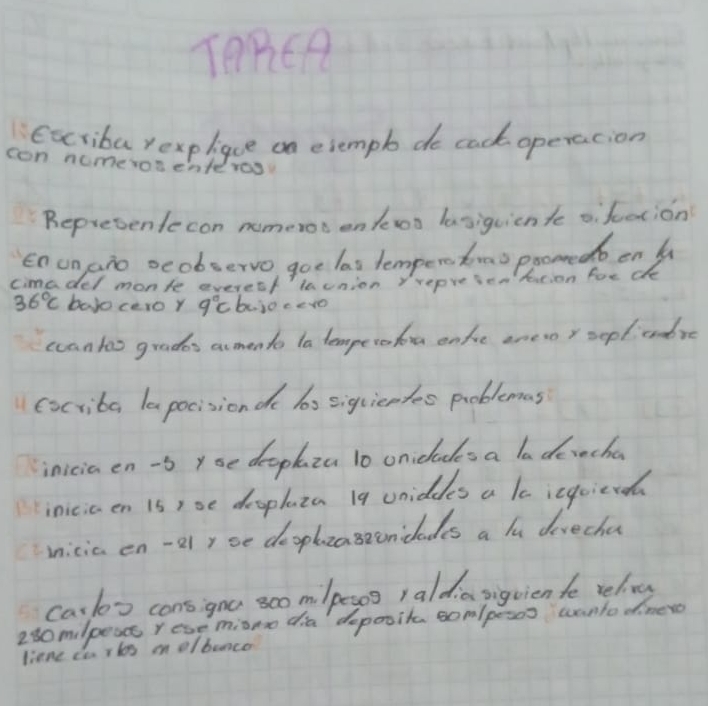 TAREA
1: Escriba y explique un ejemplo de cada operacion
con numeros enteros
2: Represente con numeros enteros la siguiente situación:
"En un año se observo que las temperaturas promedio en la
cima del monte everest la union y representacion fue de
36°c bajo cero y 9°c bajo cero
3: cuantos grados aumento la temperatura entre enero y septiembre
4 escriba la pocision de los siguientes problemas:
inicia en -5 y se desplaza 10 unidades a la derecha
inicia en 15 y se desplaza 19 unidades a la izquierda
inicia en -21 y se desplaza unidades a la derecha
5: Carlos consigna 300 mil pesos y al dia siguiente retira
280 mil pesos y ese mismo dia deposita mil pesos cuanto dinero
tiene carlos en el banco